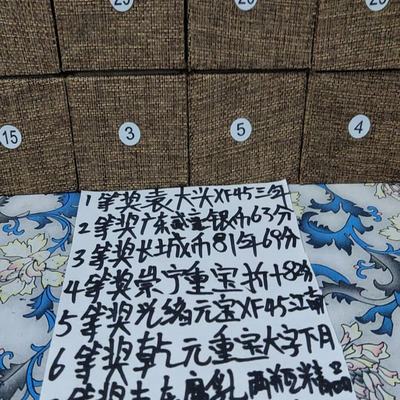 15
3
5
4
1等奖袁大头XF45三年
2等奖广东咸宝银币63分
3等奖长城币81年69分
4等奖崇宁重宝折十82分
5等奖光绪元宝XF45江南
6等奖乾元重宝大字下月
腐乳两瓶精品